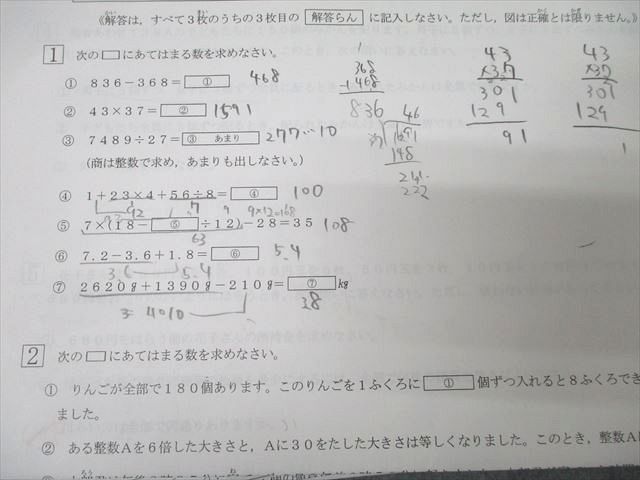 《解答は,すべて3枚のうちの3枚目の 解答らん に記入しなさい。ただし,図は正確とは限りません。》
1 次の□にあてはまる数を求めなさい。
① 836-368= ① 468
② 43×37= ② 1591
③ 7489÷27= ③ あまり 277…10
(商は整数で求め,あまりも出しなさい。)
④ 1+23×4+56÷8= ④ 100
92 7
⑤ 7×(18- ⑤ ÷12)-28=35 108
63
⑥ 7.2-3.6+1.8= ⑥ 5.4
3.6 5.4
⑦ 2620g+1390g-210g= ⑦ kg
4010 3.8
368
+468
836
43
×37
301
129
91
43
×37
301
129
1
46
148
222
2 次の□にあてはまる数を求めなさい。
① りんごが全部で180個あります。このりんごを1ふくろに ① 個ずつ入れると8ふくろでき
ました。
② ある整数Aを6倍した大きさと,Aに30をたした大きさは等しくなりました。このとき,整数A